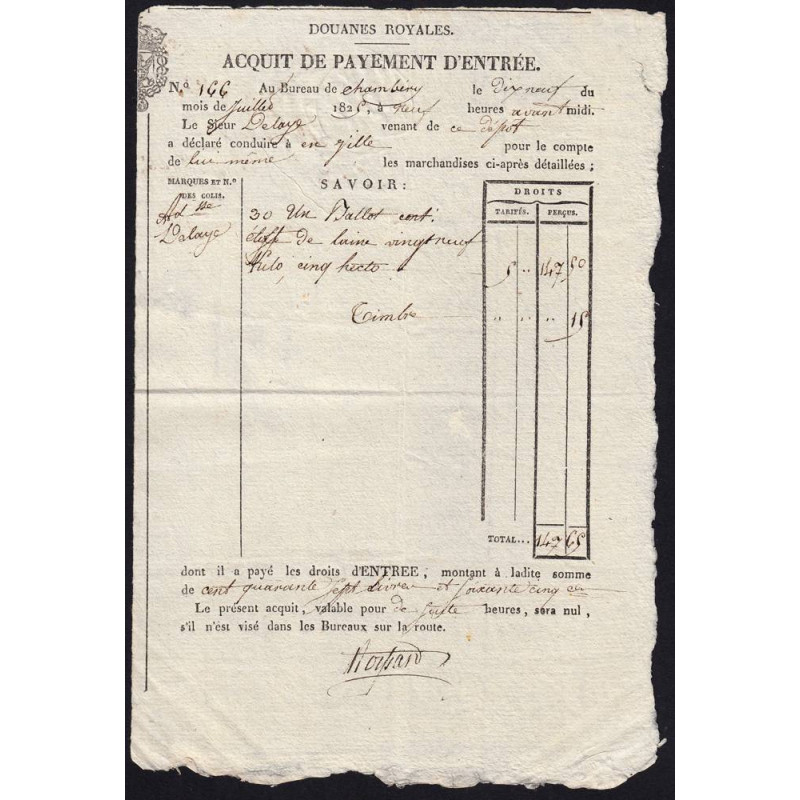 DOUANES ROYALES.
ACQUIT DE PAYEMENT D'ENTRÉE.
N.º 166 Au Bureau de Chambéry le Dix neuf du
mois de Juillet 1825, à neuf heures avant midi.
Le Sieur Delaye venant de ce dépot
a déclaré conduire à en ville pour le compte
de lui même les marchandises ci-après détaillées ;
MARQUES ET N.º DES COLIS.
SAVOIR :
DROITS
TARIFÉS. PERÇUS.
Delaye
30 Un Ballot cont.
étoffe de laine vingt neuf
Kilo, cinq hecto 5 " 147 50
Timbre " " " 15
TOTAL... 147 65
dont il a payé les droits d'ENTREE, montant à ladite somme
de cent quarante Sept Livres et Soixante cinq
Le présent acquit, valable pour de suite heures, sera nul,
s'il n'est visé dans les Bureaux sur la route.